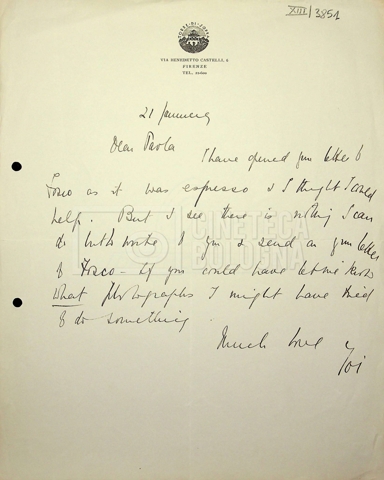 XIII/3851
TORRE·DI·SOPRA
VIA BENEDETTO CASTELLI, 2
FIRENZE
TEL.
21 January
Dear Paola
I have opened your letter to
Fosco as it was espresso & I thought I could
help. But I see there is nothing I can
do but write to you & send on your letter
to Fosco - If you could have let me know
what photographs I might have tried
to do something
Much love
Yoi
CINETECA
BOLOGNA